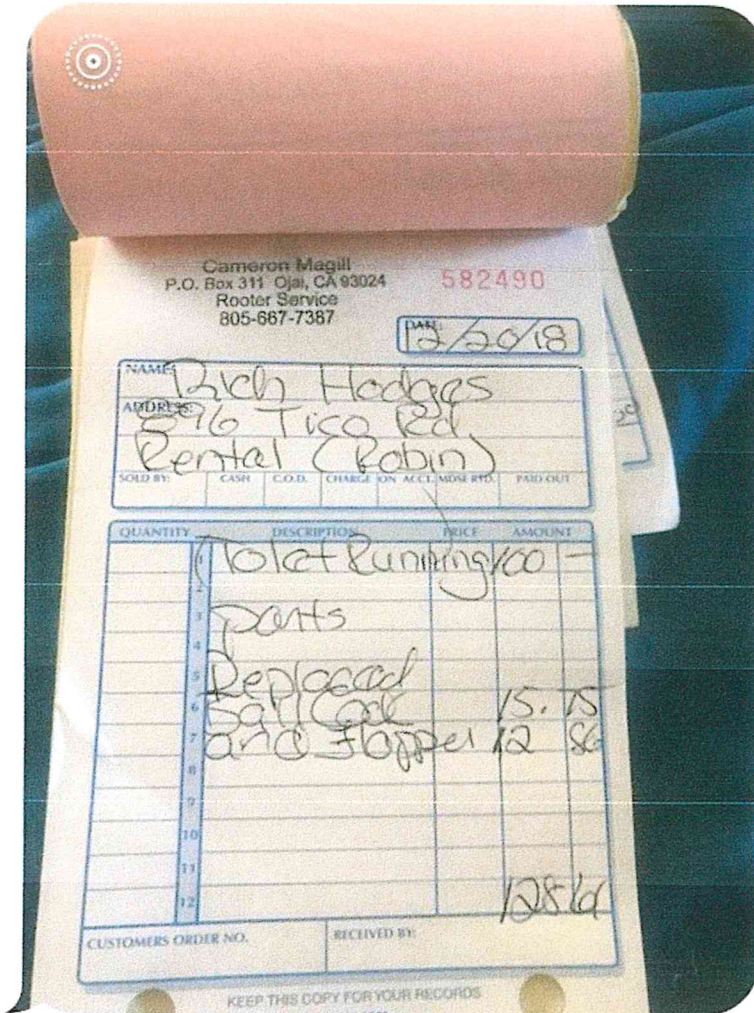 Cameron Magill
P.O. Box 311 Ojai, CA 93024
Rooter Service
805-667-7387
582490
DATE: 12/20/18
NAME: Rich Hodges
ADDRESS: 896 Tico Rd
Rental (Robin)
SOLD BY: CASH C.O.D. CHARGE ON ACCT. MDSE RTD. PAID OUT
QUANTITY DESCRIPTION PRICE AMOUNT
1 Tolet Running 100 -
2
3 parts
4
5 Replaced
6 Ball Cock 15.75
7 and Flapper 12 86
8
9
10
11
12 128 61
CUSTOMERS ORDER NO. RECEIVED BY:
KEEP THIS COPY FOR YOUR RECORDS